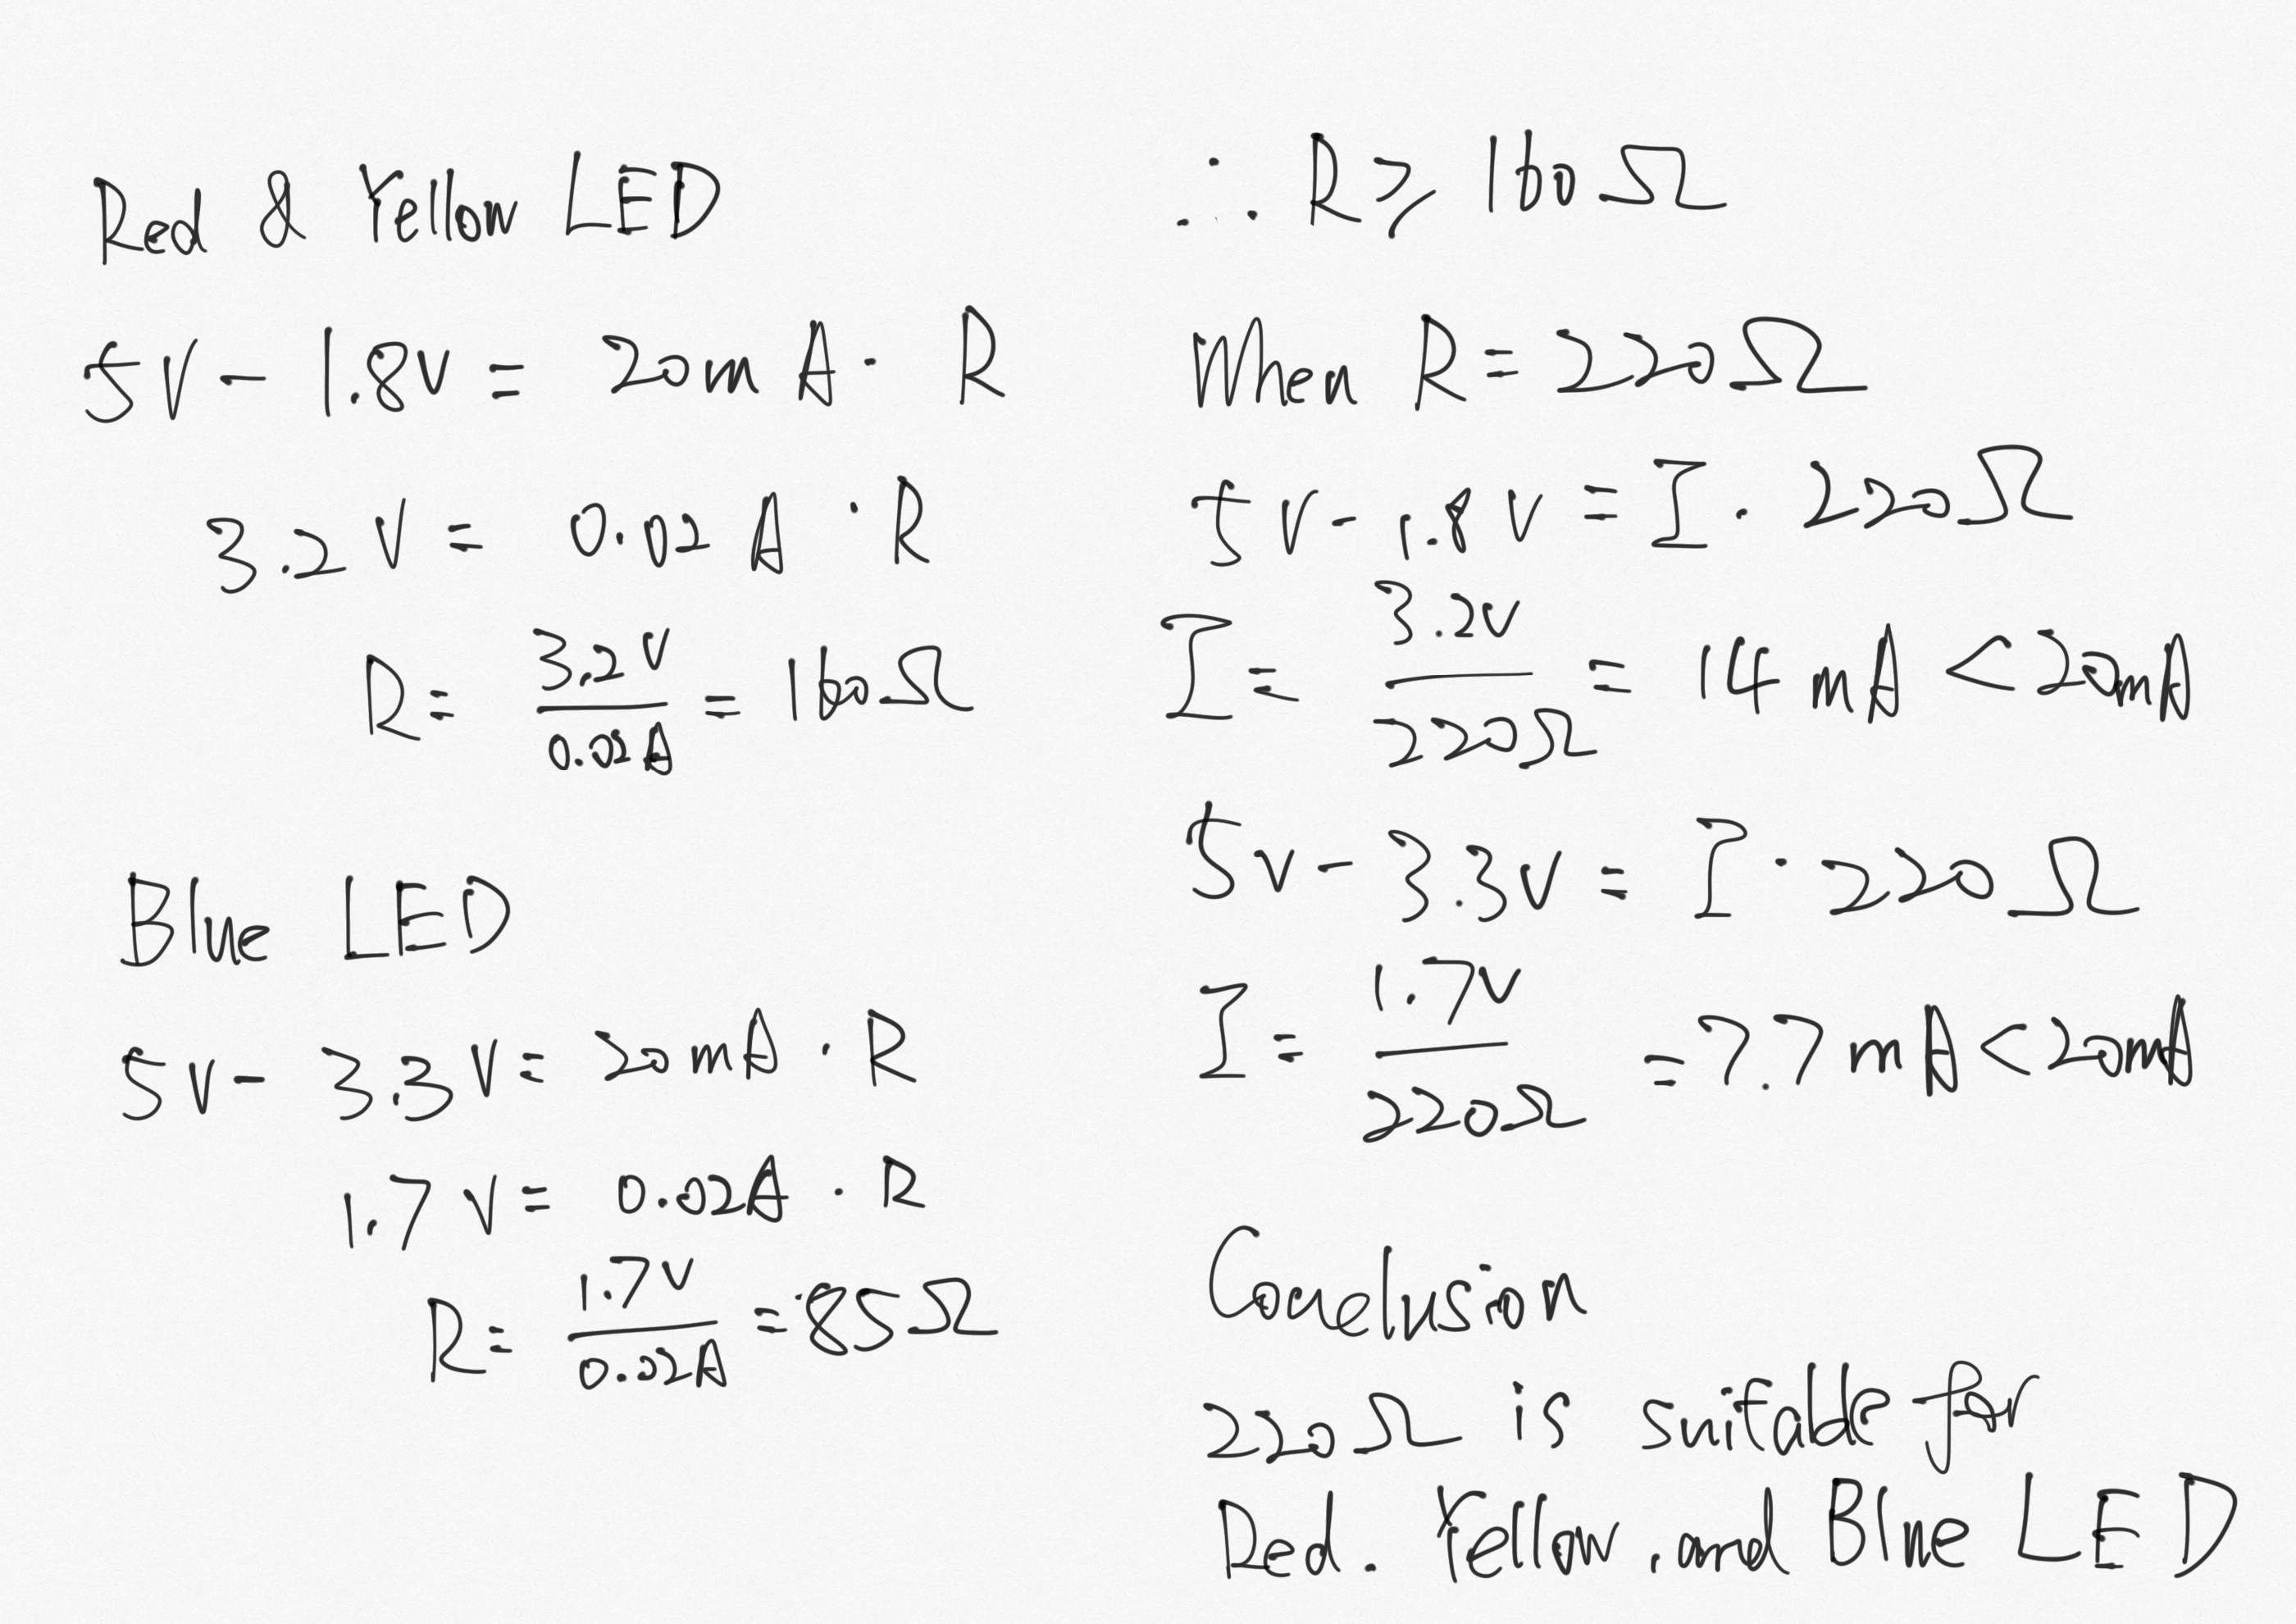 Red & Yellow LED
5V - 1.8V = 20mA · R
3.2V = 0.02A · R
R = 3.2V / 0.02A = 160Ω
Blue LED
5V - 3.3V = 20mA · R
1.7V = 0.02A · R
R = 1.7V / 0.02A = 85Ω
∴ R ≥ 160Ω
When R = 220Ω
5V - 1.8V = I · 220Ω
I = 3.2V / 220Ω = 14mA < 20mA
5V - 3.3V = I · 220Ω
I = 1.7V / 220Ω = 7.7mA < 20mA
Conclusion
220Ω is suitable for
Red. Yellow, and Blue LED